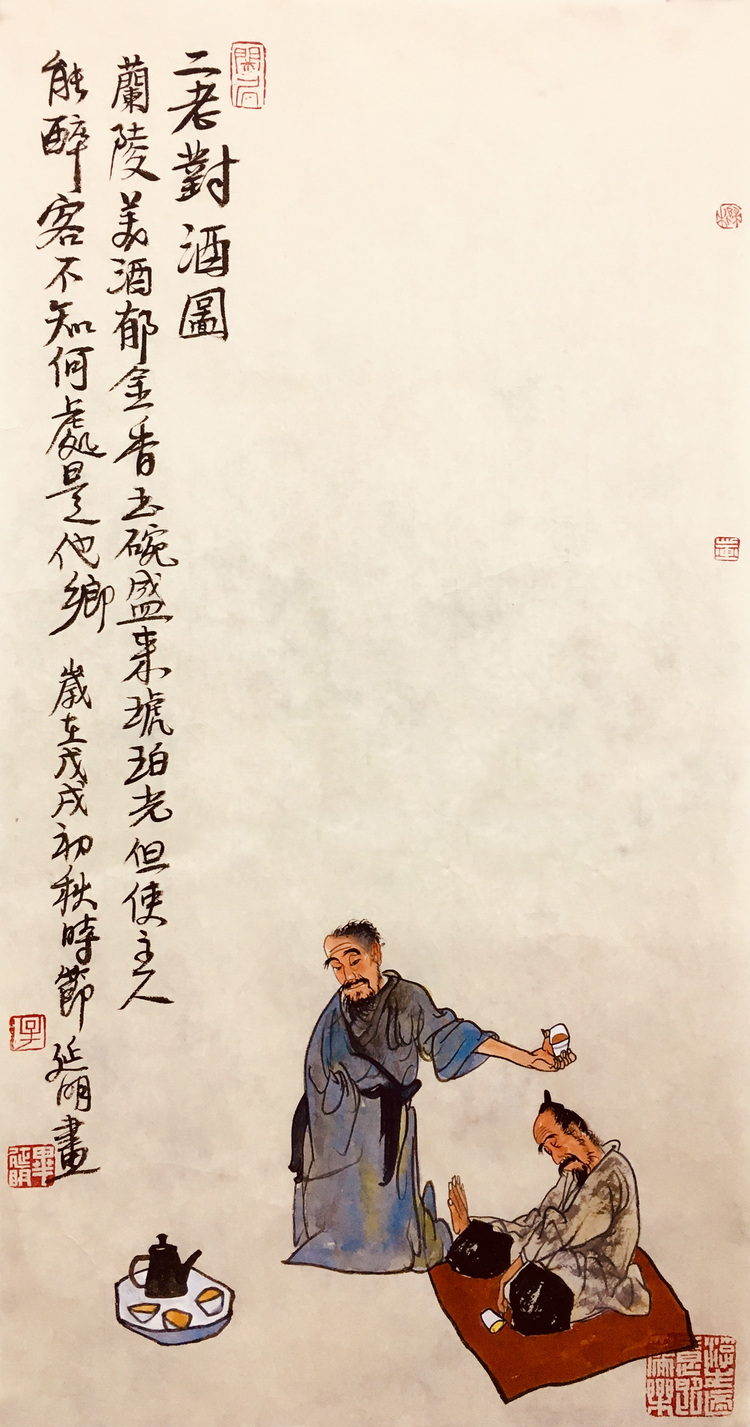 二老對酒圖
蘭陵美酒郁金香玉碗盛来琥珀光但使主人
能醉客不知何處是他鄉 歲在戊戌初秋時節延明畫
畢延明